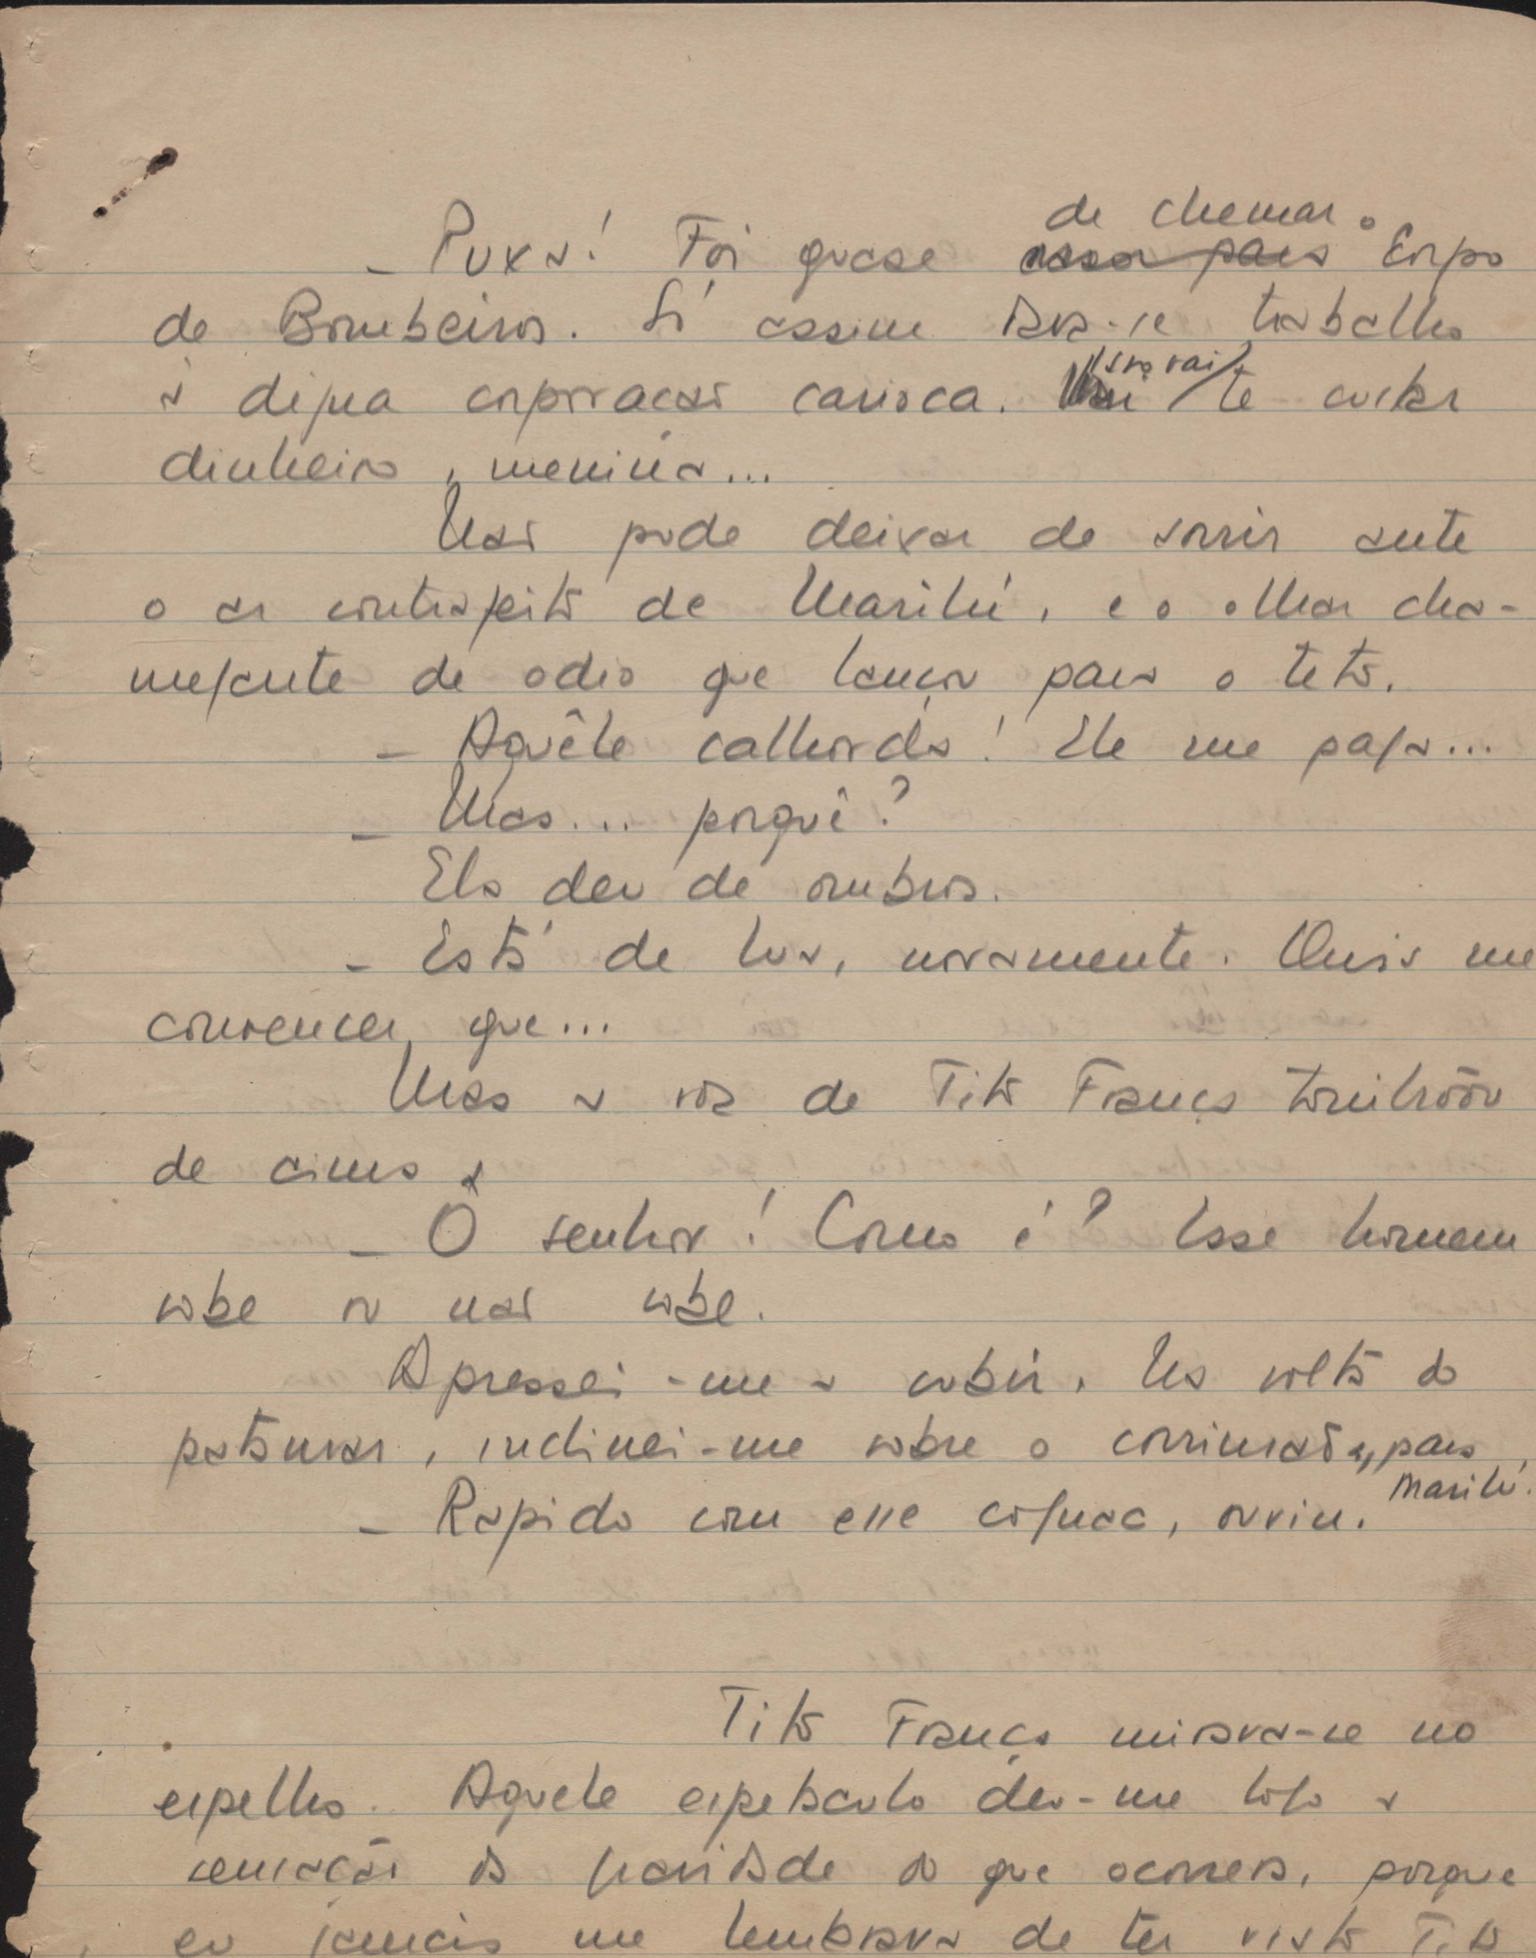 de chamar o
- Puxa! Foi quase Corpo
de Bombeiros. Só assim dar-se trabalho
à digna corporação carioca. Isso vai te custar
dinheiro, menina...
Não pude deixar de sorrir ante
o ar contrafeito de Marilú, e o olhar cha-
mejante de odio que lançou para o teto.
- Aquêle calhorda! Ele me paga...
- Mas... porquê?
Ela deu de ombros.
- Está de lua, novamente. Quis me
convencer que...
Mas a voz de Tito França tonitroou
de cima:
- Ô senhor! Como é? Esse homem
sobe ou não sobe.
Apressei-me a subir. Na volta do
patamar, inclinei-me sobre o corrimão, para
Marilú.
- Rapido com esse cognac, ouviu.
Tito França mirava-se no
espelho. Aquele espetaculo deu-me logo a
sensação da gravidade do que ocorrera, porque
eu jamais me lembrava de ter visto Tito